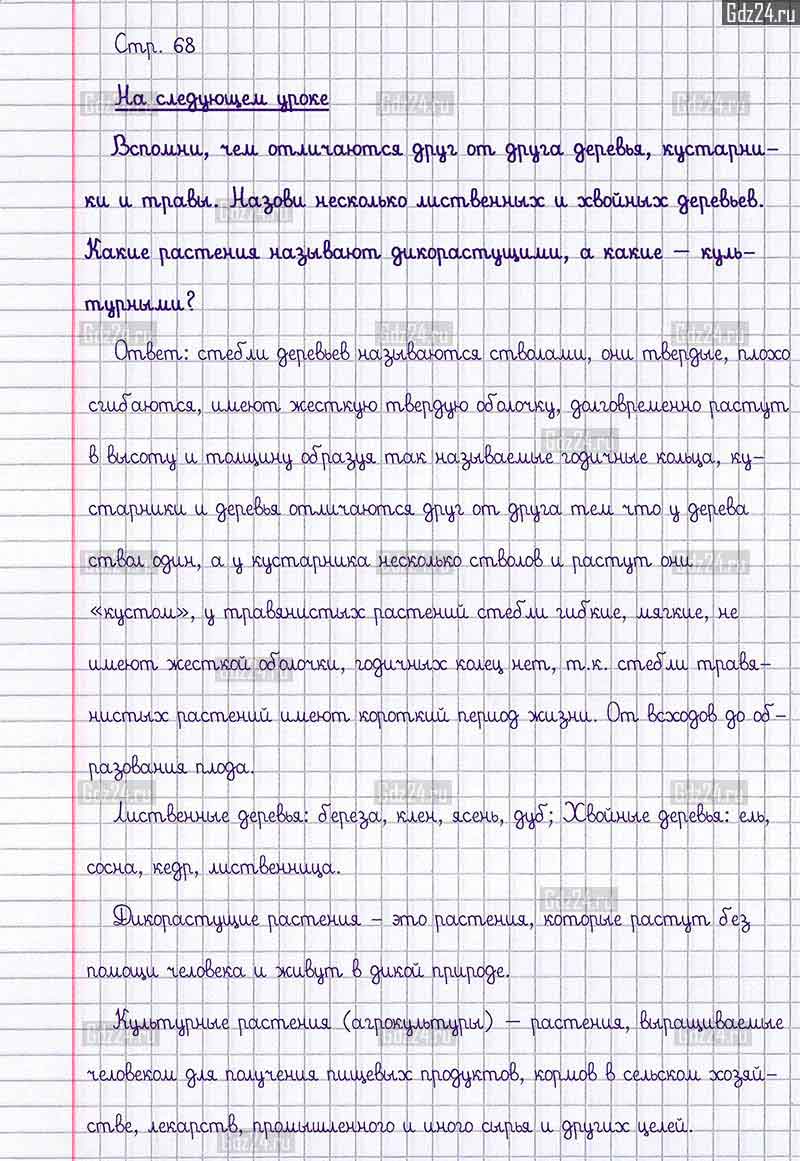 Gdz24.ru
Стр. 68
На следующем уроке
Вспомни, чем отличаются друг от друга деревья, кустарни-
ки и травы. Назови несколько лиственных и хвойных деревьев.
Какие растения называют дикорастущими, а какие – куль-
турными?
Ответ: стебли деревьев называются стволами, они твердые, плохо
сгибаются, имеют жесткую твердую оболочку, долговременно растут
в высоту и толщину образуя так называемые годичные кольца, ку-
старники и деревья отличаются друг от друга тем что у дерева
ствол один, а у кустарника несколько стволов и растут они
«кустом», у травянистых растений стебли гибкие, мягкие, не
имеют жесткой оболочки, годичных колец нет, т.к. стебли травя-
нистых растений имеют короткий период жизни. От всходов до об-
разования плода.
Лиственные деревья: береза, клен, ясень, дуб; Хвойные деревья: ель,
сосна, кедр, лиственница.
Дикорастущие растения – это растения, которые растут без
помощи человека и живут в дикой природе.
Культурные растения (агрокультуры) – растения, выращиваемые
человеком для получения пищевых продуктов, кормов в сельском хозяй-
стве, лекарств, промышленного и иного сырья и других целей.